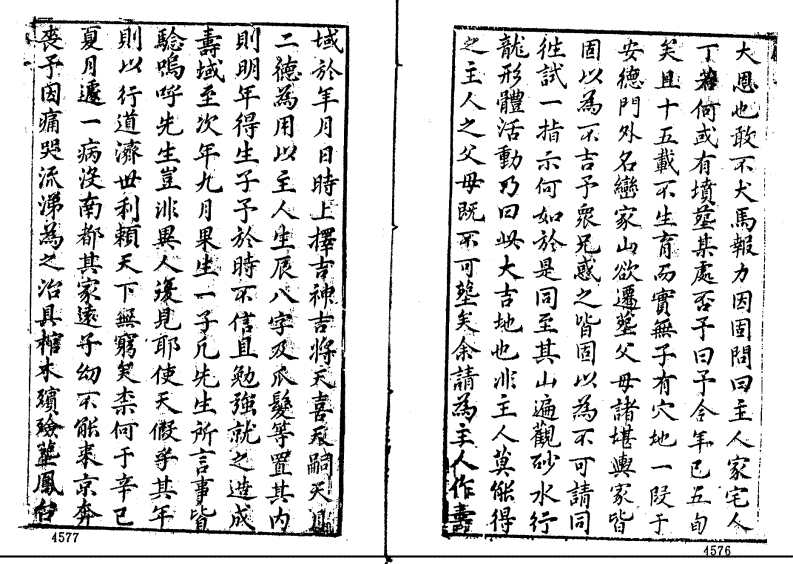 大恩也敢不犬馬報力因固問曰主人家宅人
丁若何或有墳塋某處否予曰予今年已五旬
矣且十五載不生育而實無子有穴地一段于
安德門外名巒家山欲遷塋父母諸堪輿家皆
固以為不吉予眾兄惑之皆固以為不可請同
徃試一指示何如於是同至其山遍觀砂水行
龍形體活動乃曰此大吉地也非主人莫能得
之主人之父母既不可塋矣余請為主人作壽
4576
域於年月日時上擇吉神吉將天喜及嗣天
二德為用以主人生辰八字及爪髮等置其内
則明年得生子予於時不信且勉強就之造成
壽域至次年九月果生一子凡先生所言事皆
驗嗚呼先生豈非異人復見耶使天假乎其年
則以行道濟世利賴天下無窮矣柰何于辛巳
夏月遽一病沒南都其家遠子幼不能來京奔
喪予因痛哭流涕為之治具棺木殯殮塟鳳台
4577